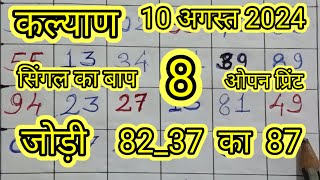 कल्याण 10 अगस्त 2024
55 13 39 89
सिंगल का बाप 8 ओपन प्रिंट
94 23 27 81 49
जोड़ी 82_37 का 87